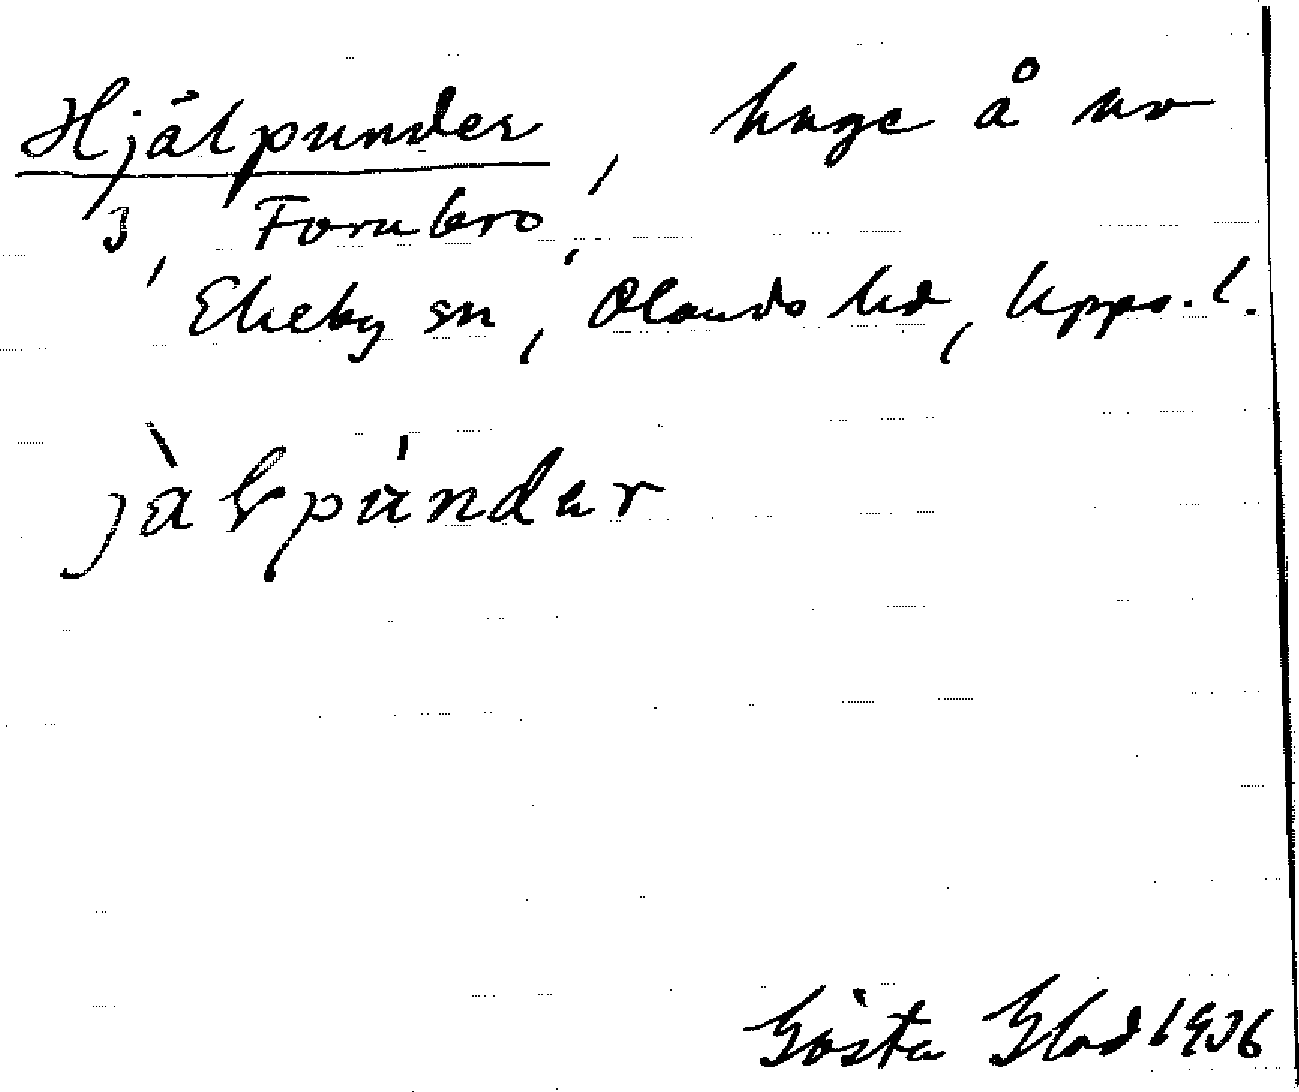 Hjälpunder, hage å nr
3, Fornbro,
Ekeby sn, Olands hd, Upps. l.
jàlpúndar
Gösta Glad 1936